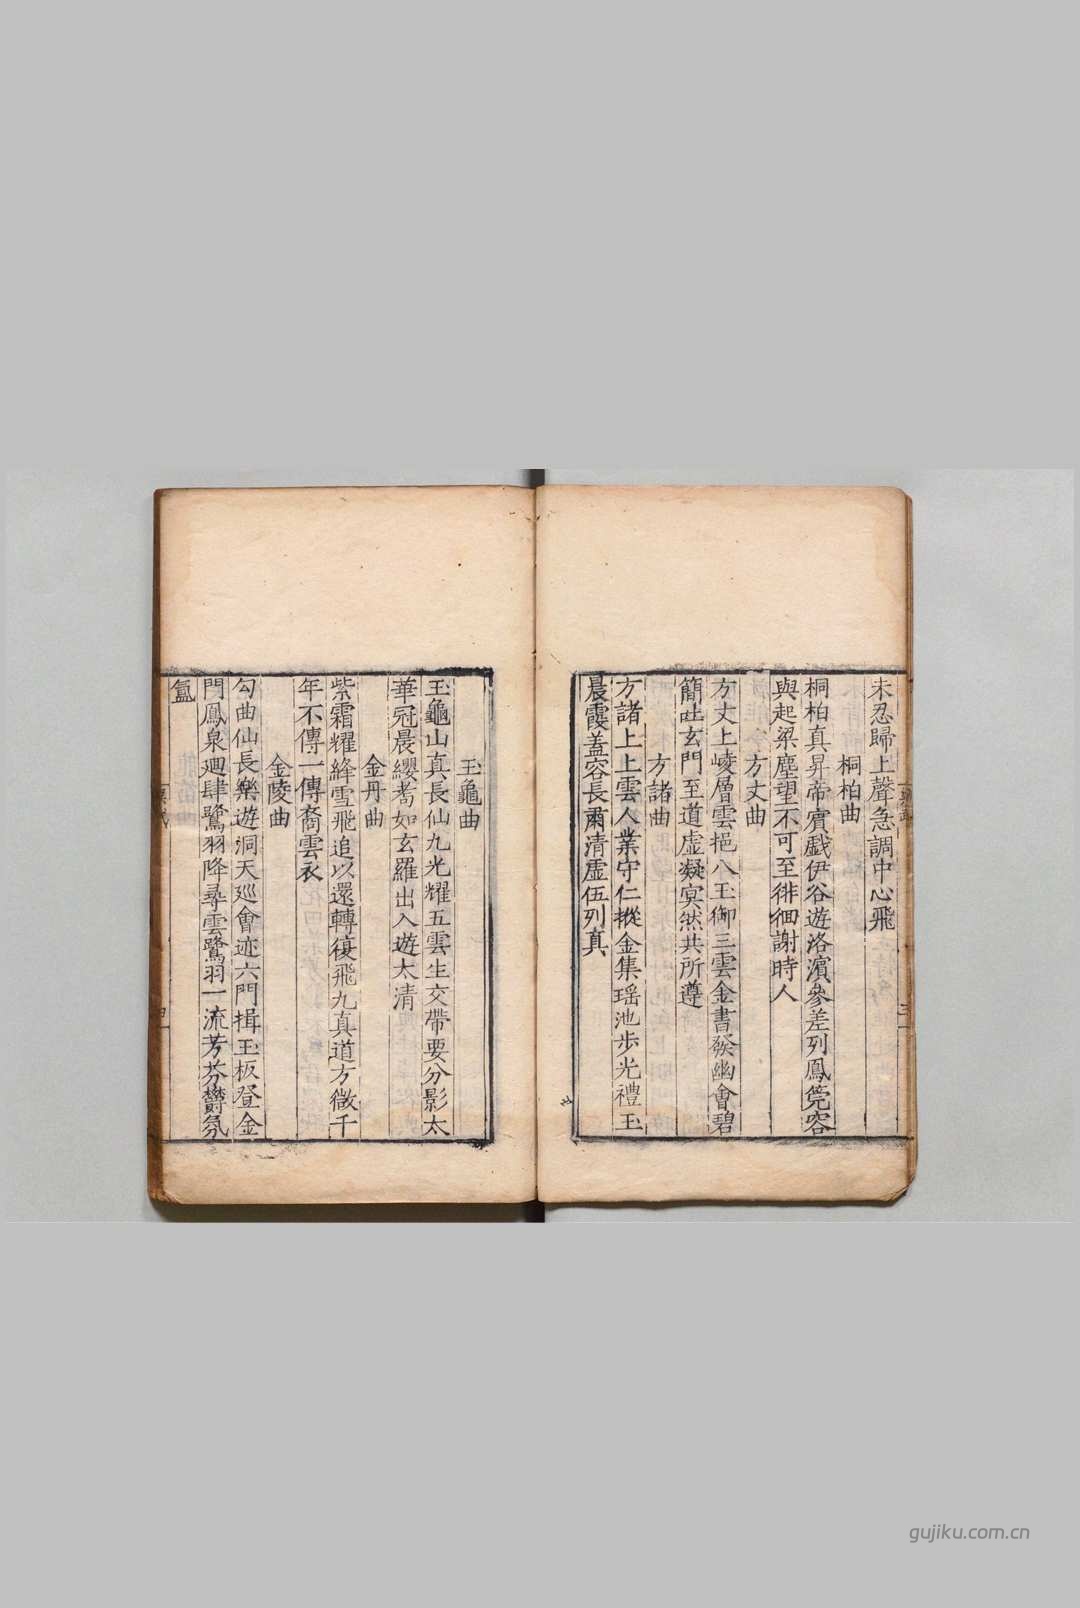 未忍歸上聲急調中心飛
桐柏曲
桐柏真昇帝賓戲伊谷遊洛濱參差列鳳筦容
與起梁塵望不可至徘徊謝時人
方丈曲
方丈上崚層雲挹八玉御三雲金書發幽會碧
簡吐玄門至道虛凝冥然共所遵
方諸曲
方諸上上雲人業守仁摐金集瑶池步光禮玉
晨霞蓋容長肅清虛伍列真
玉龜曲
玉龜山真長仙九光耀五雲生交帶要分影大
華冠晨纓耇如玄羅出入遊太清
金丹曲
紫霜耀絳雪飛追以還轉復飛九真道方微千
年不傳一傳裔雲衣
金陵曲
勾曲仙長樂遊洞天巡會迹六門揖玉板登金
門鳳泉廻肆鷺羽降尋雲鷺羽一流芳芬欝氛
氳
gujiku.com.cn